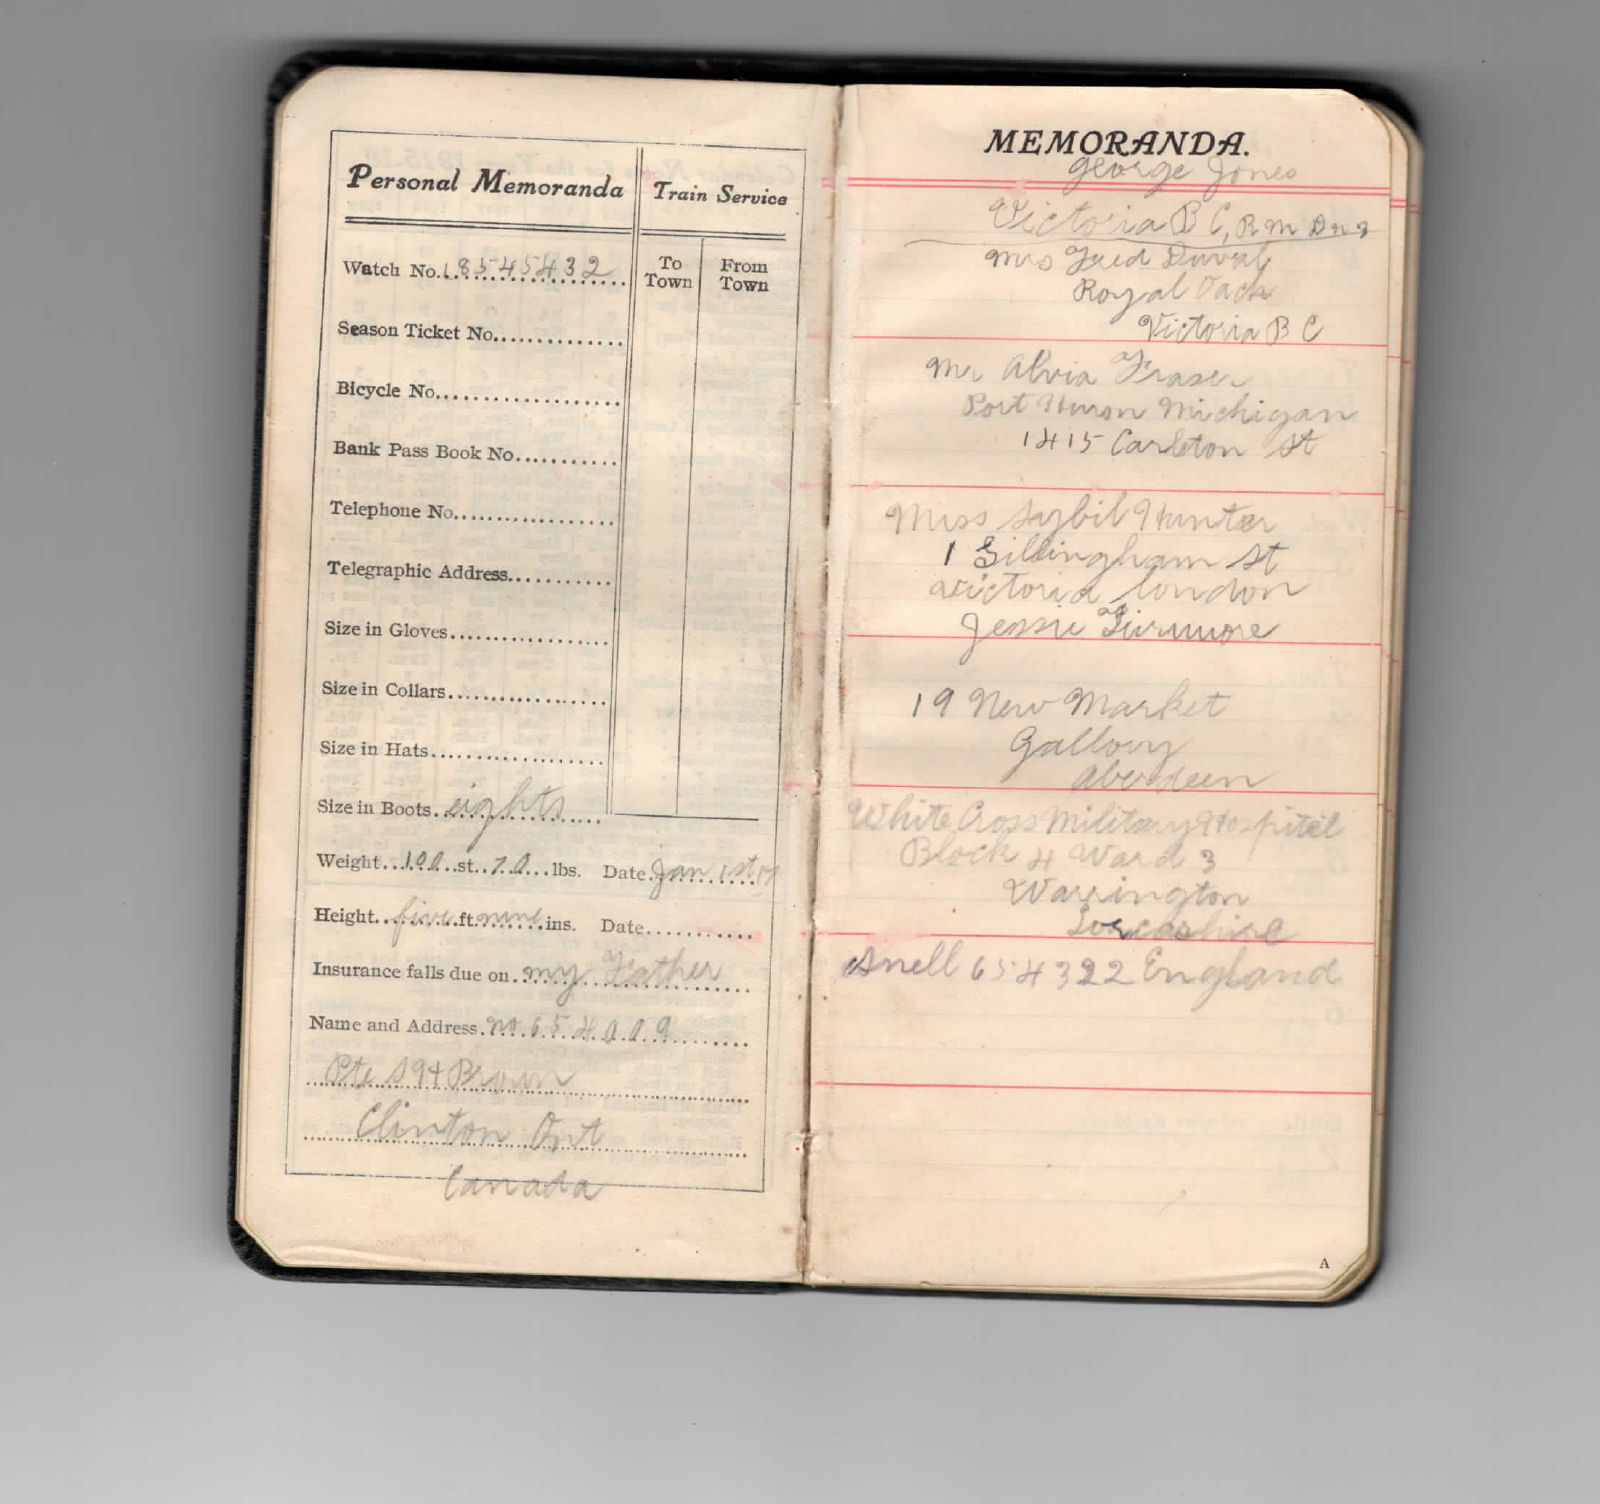 Personal Memoranda
Train Service
Watch No. 18545432
To Town
From Town
Season Ticket No.
Bicycle No.
Bank Pass Book No.
Telephone No.
Telegraphic Address
Size in Gloves
Size in Collars
Size in Hats
Size in Boots eights
Weight 100 st. 70 lbs. Date Jan 1st
Height five ft. nine ins. Date
Insurance falls due on my Father
Name and Address no 654009
Pte Brown
Clinton Ont
Canada
MEMORANDA.
George Jones
Victoria B C, R M D
Mrs Fred Duval
Royal Oack
Victoria B C
Mr Alvia Fraser
Port Huron Michigan
1415 Carleton St
Miss Sybil Hunter
1 Gillingham St
Victoria London
Jessie
19 New Market
Gallory
Aberdeen
White Cross Military Hospital
Block 4 Ward 3
Warrington
Lancashire
Snell 654322 England
A